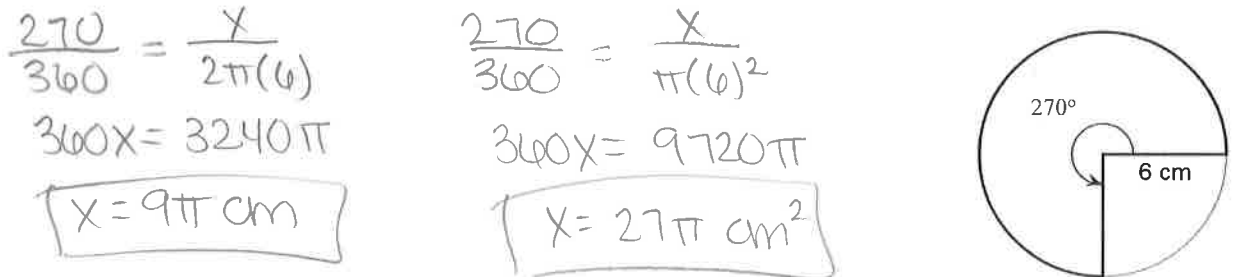 270/360 = x/2π(6)
360x = 3240π
x = 9π cm
270/360 = x/π(6)²
360x = 9720π
x = 27π cm²
270°
6 cm